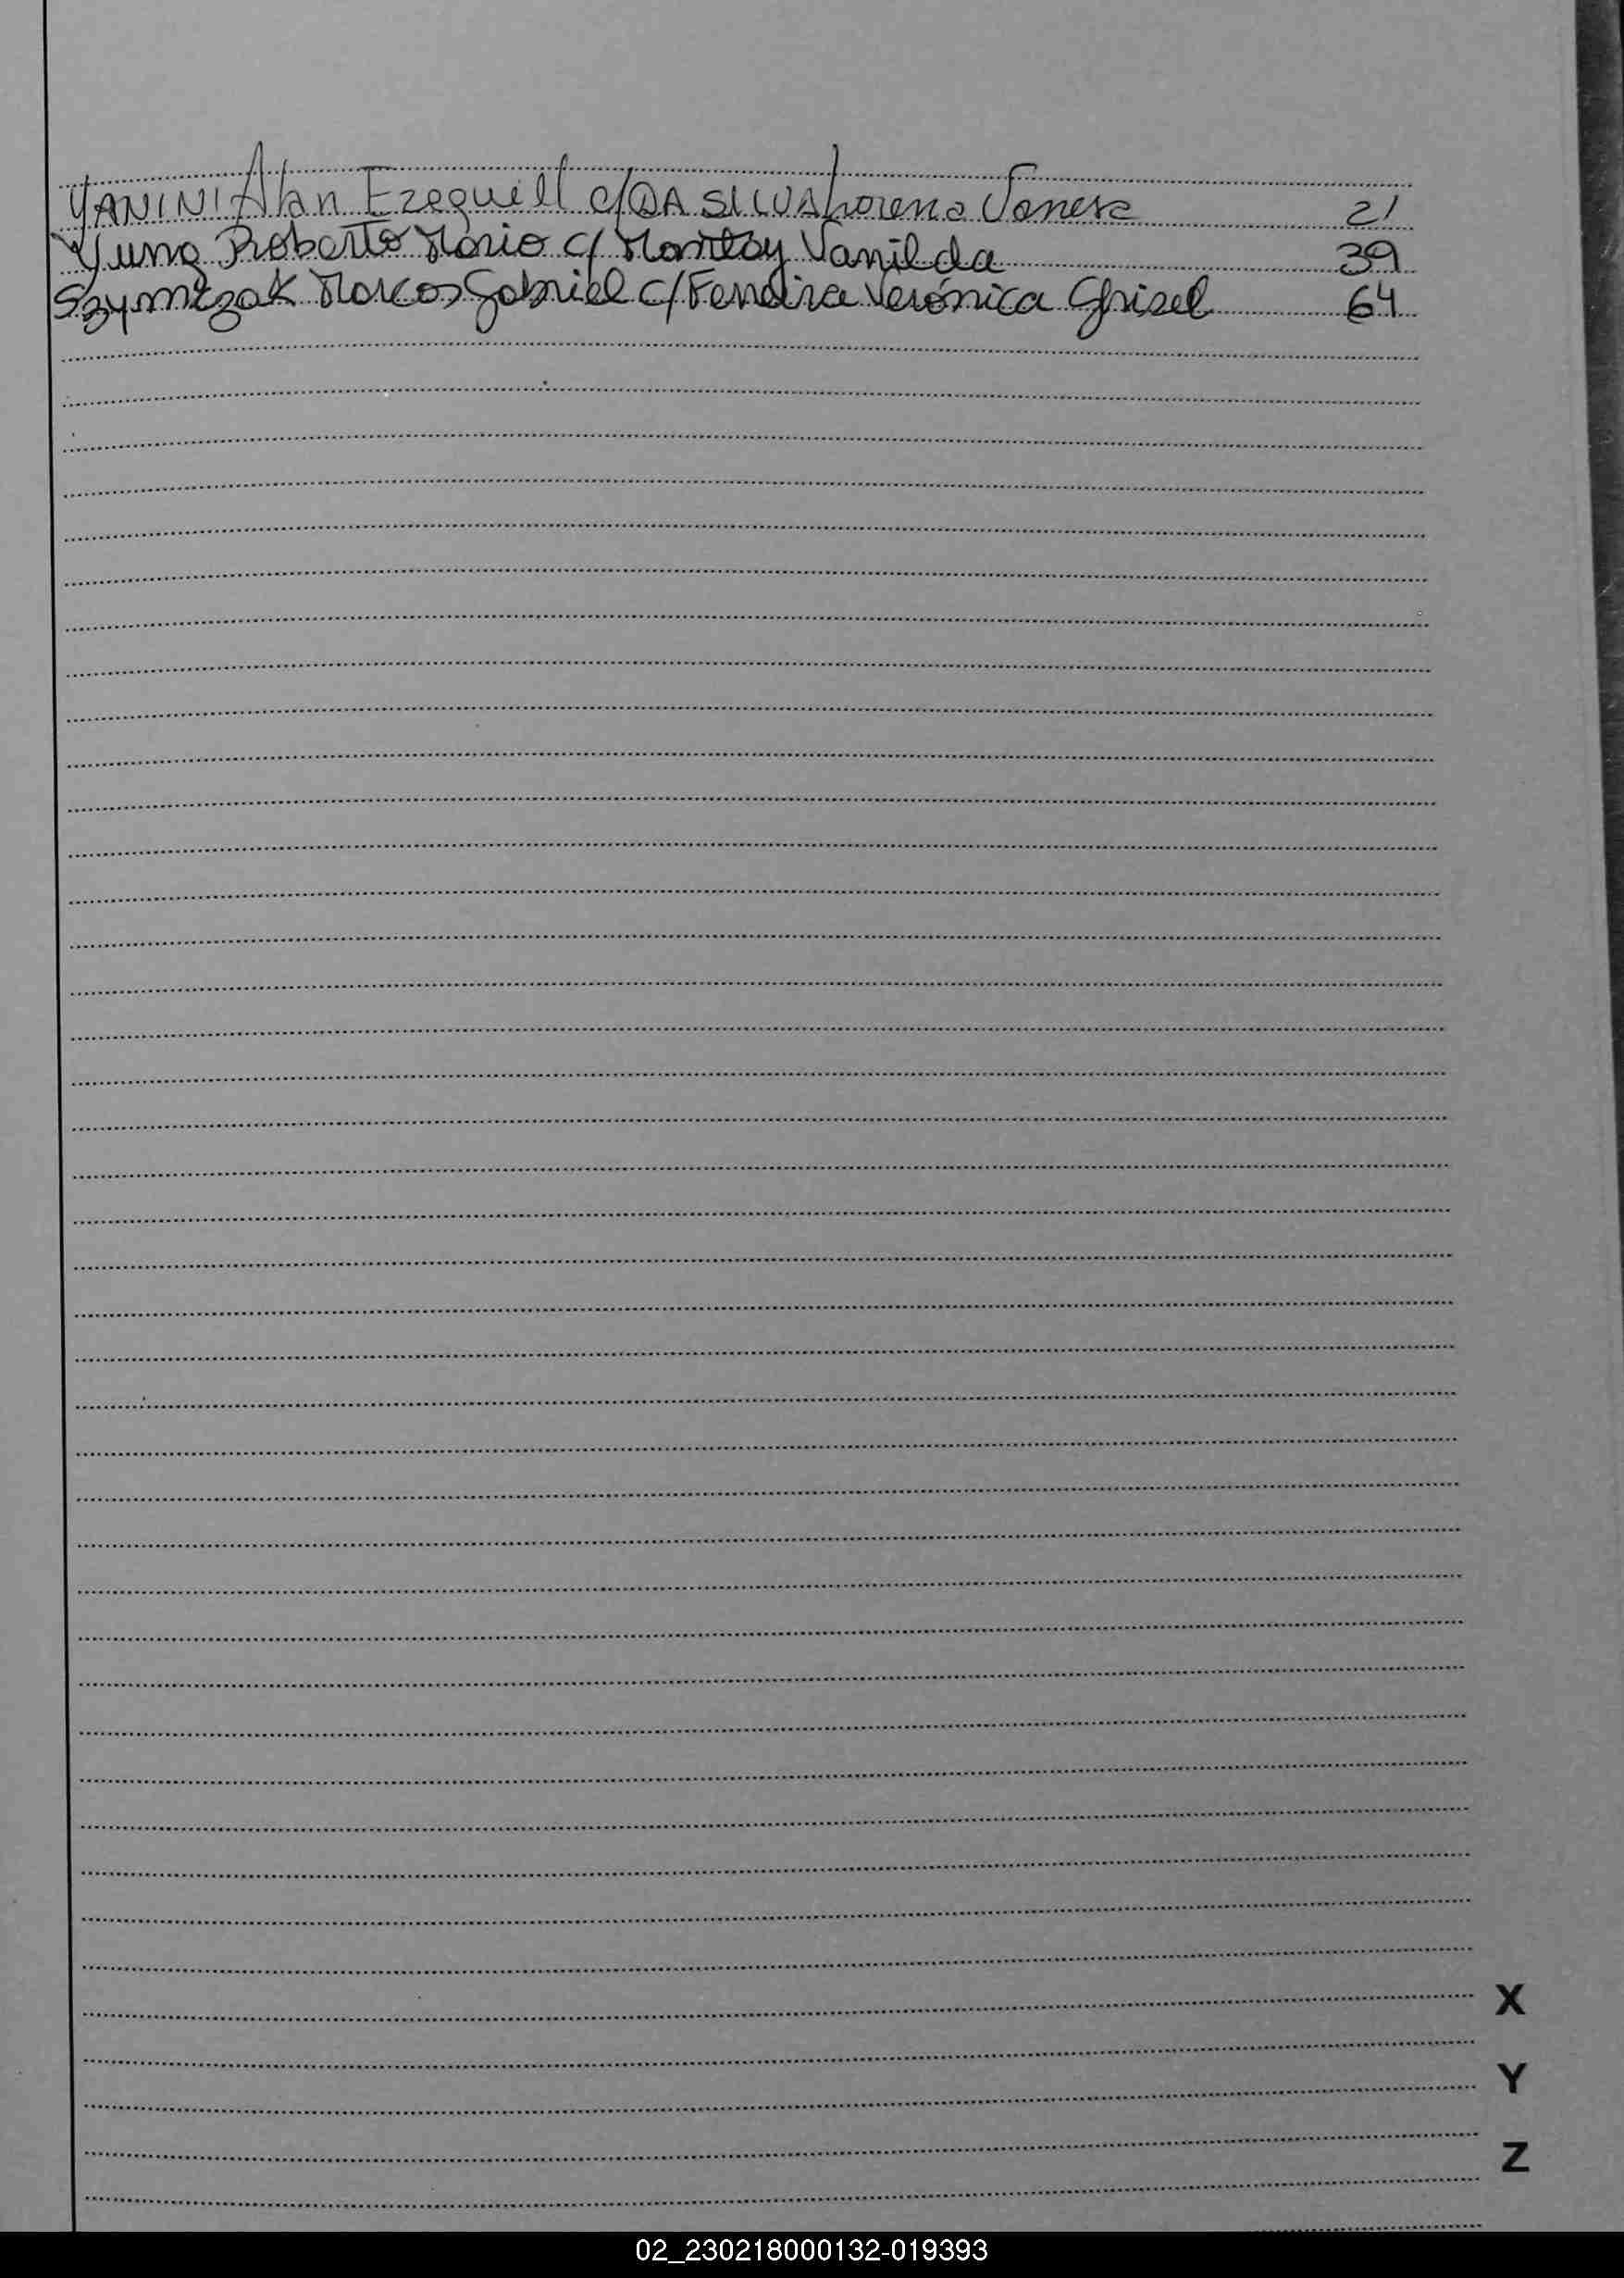 YANINI Alan Ezequiell c/ DA SILVA Lorena Vanesa 21
Yung Roberto Mario c/ Vanilda 39
Szymczak Marcos Gabriel c/ Ferreira Verónica Grisel 64
X
Y
Z
02_230218000132-019393